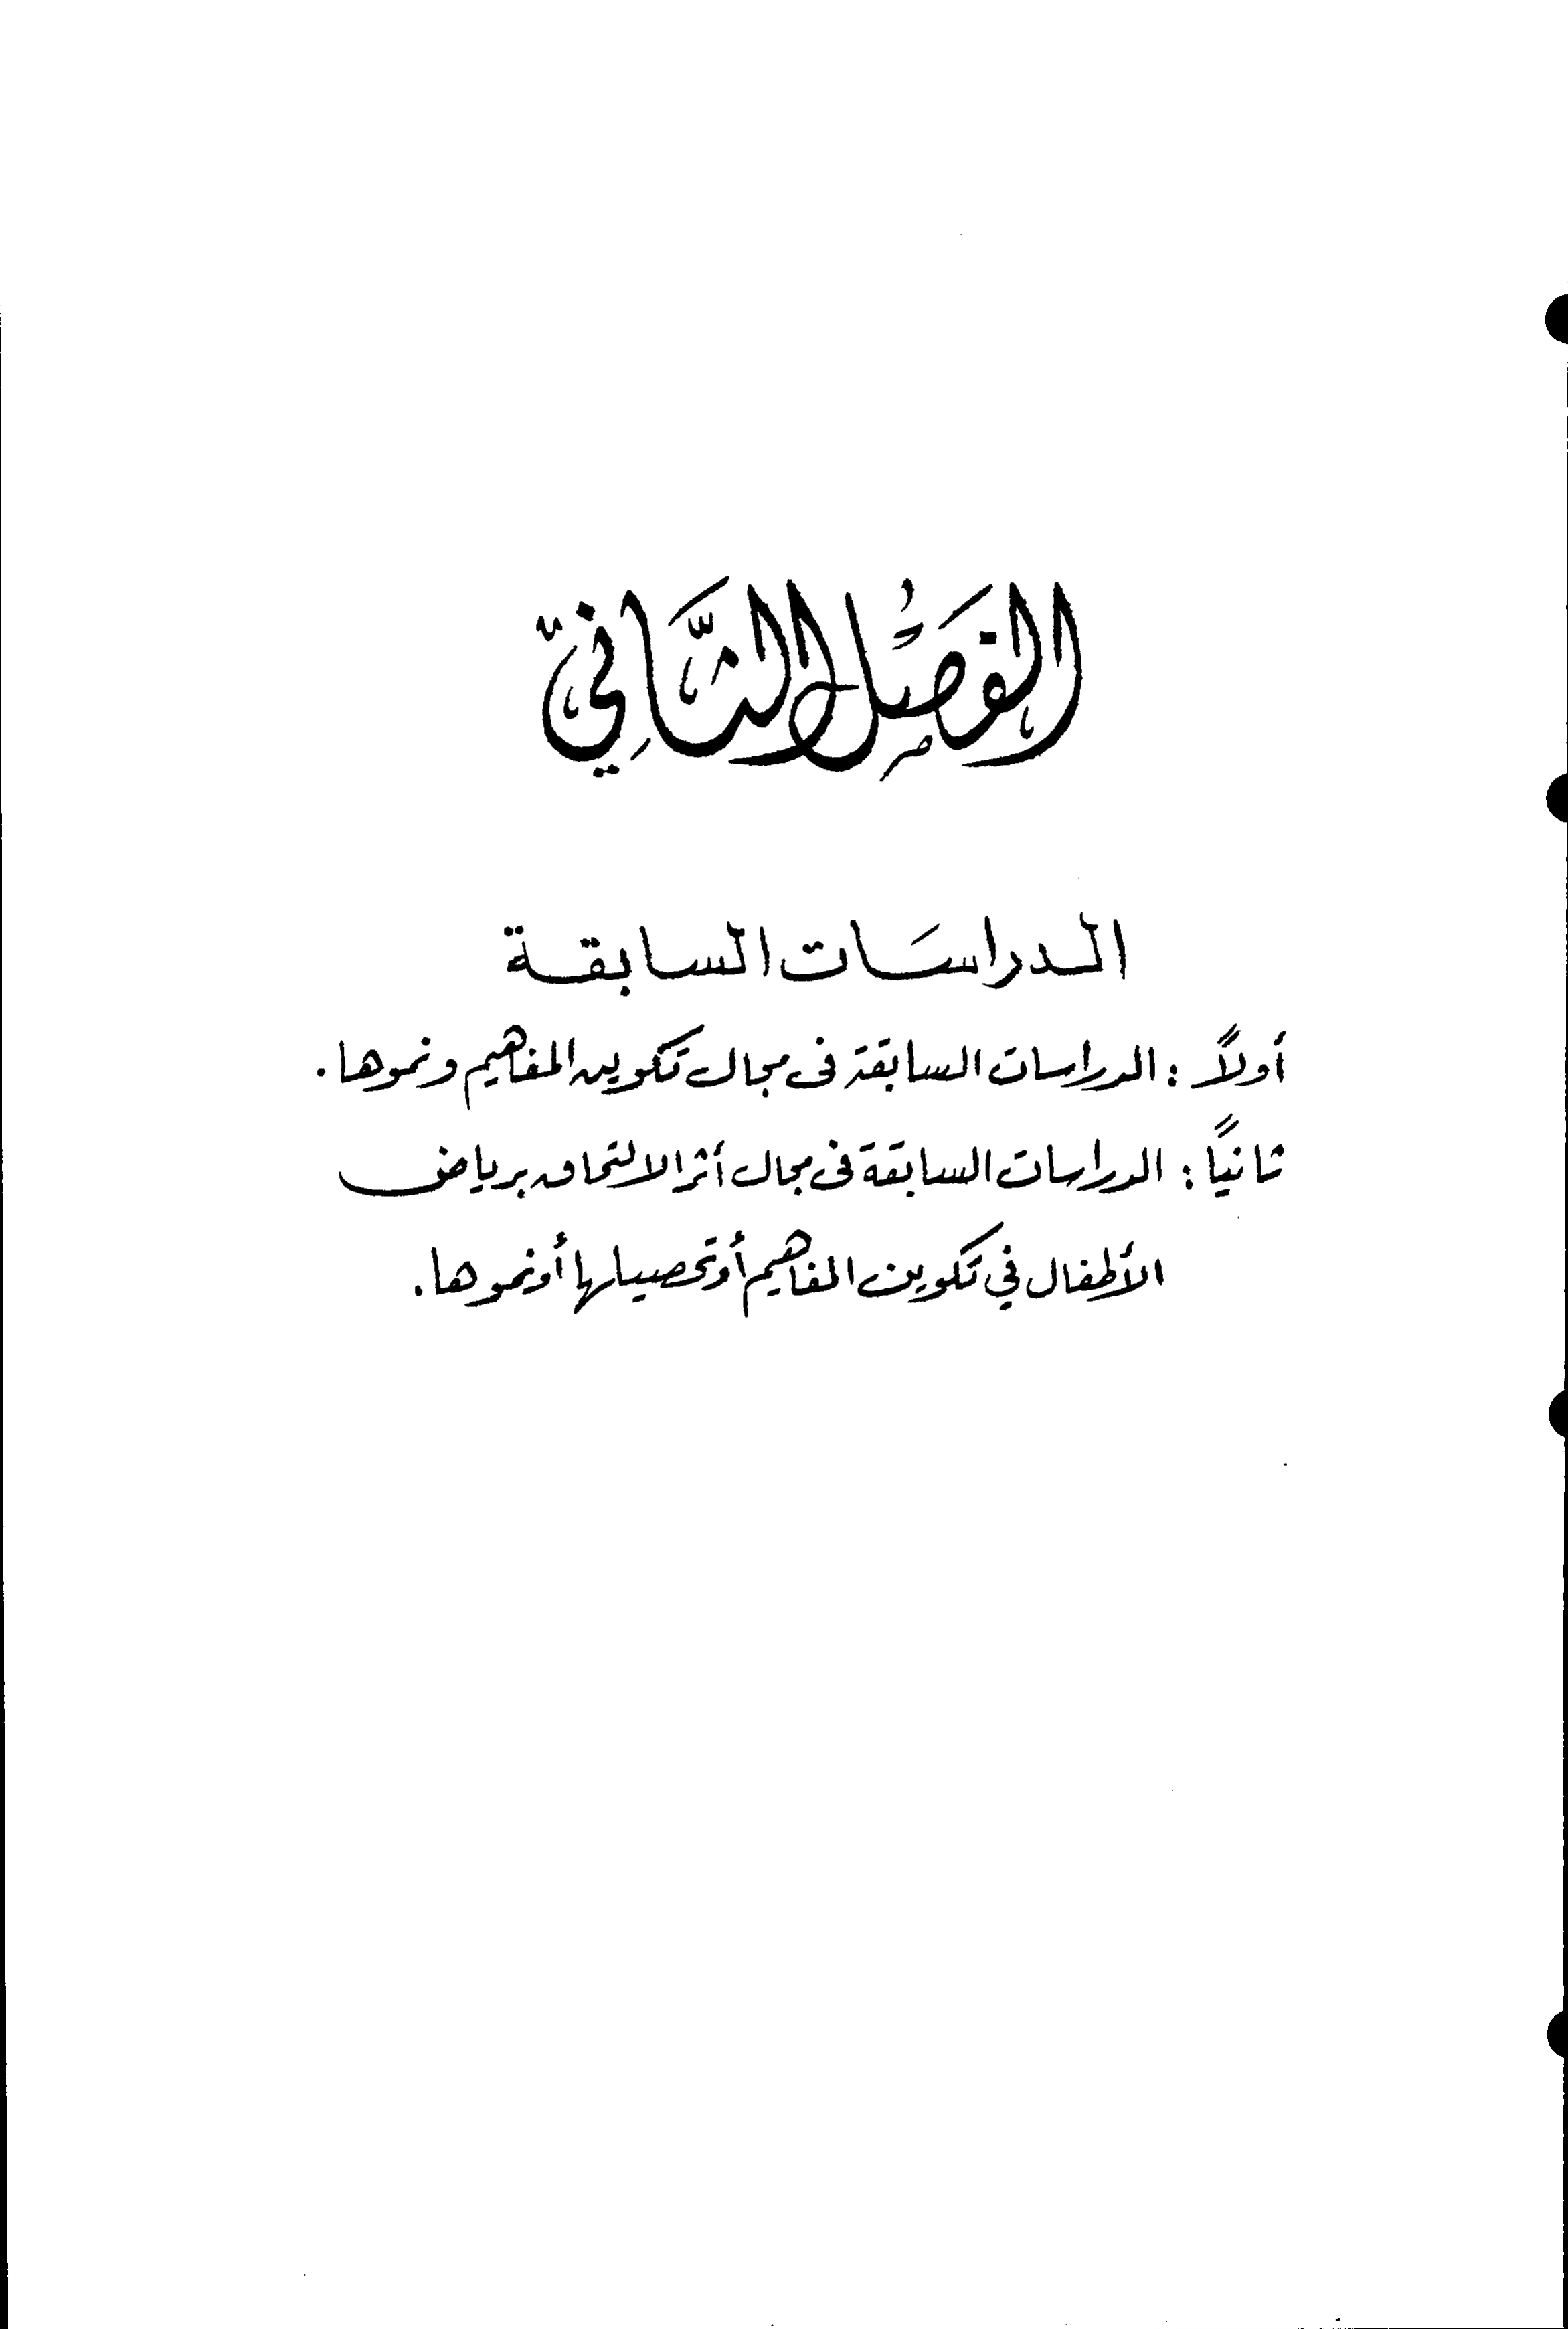 الفصل الثاني
الدراسات السابقة
أولاً : الدراسات السابقة فى مجال تكوين المفاهيم ونموها .
ثانيًا : الدراسات السابقة فى مجال أثر الالتحاق برياض
الأطفال في تكوين المفاهيم أو تحصيلها أو نموها .